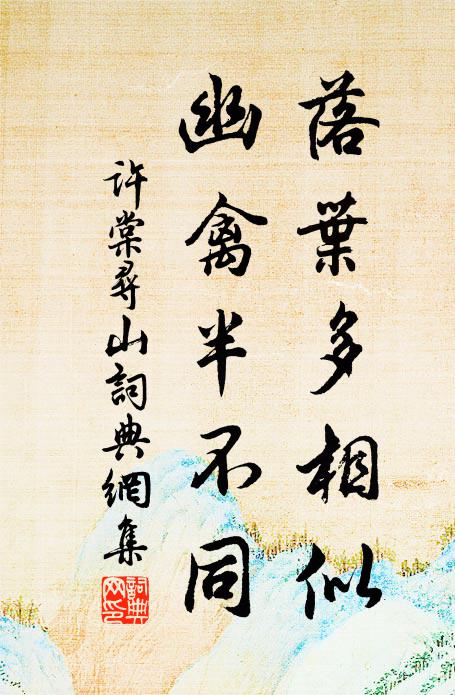 落葉多相似
幽禽半不同
許棠尋山詞典網集
詞典
网印